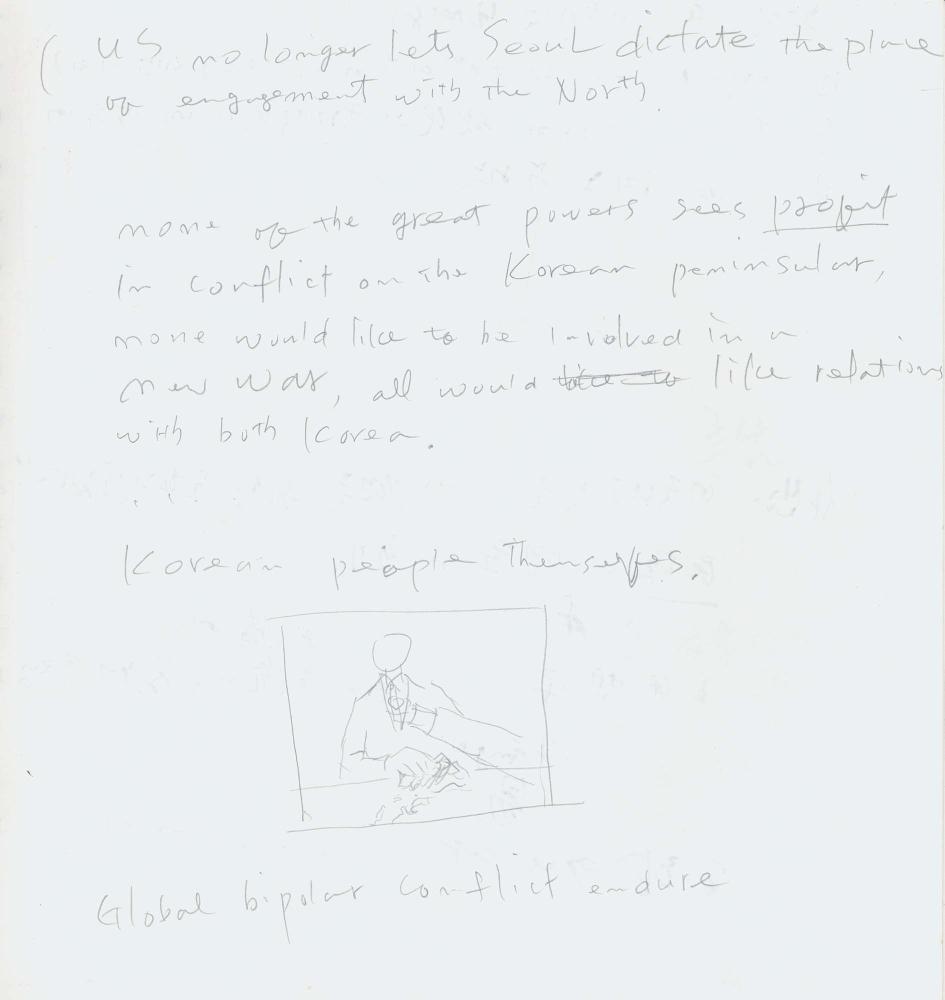 ( US no longer lets Seoul dictate the place
of engagement with the North.
none of the great powers sees profit
in conflict on the Korean peninsular,
none would like to be involved in a
new war, all would like relations
with both Korea.
...
Korean people themselfes.
Global bipolar conflict endure